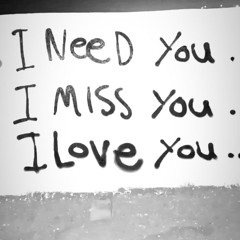 I NeeD You.
I MISS You.
I Love You..